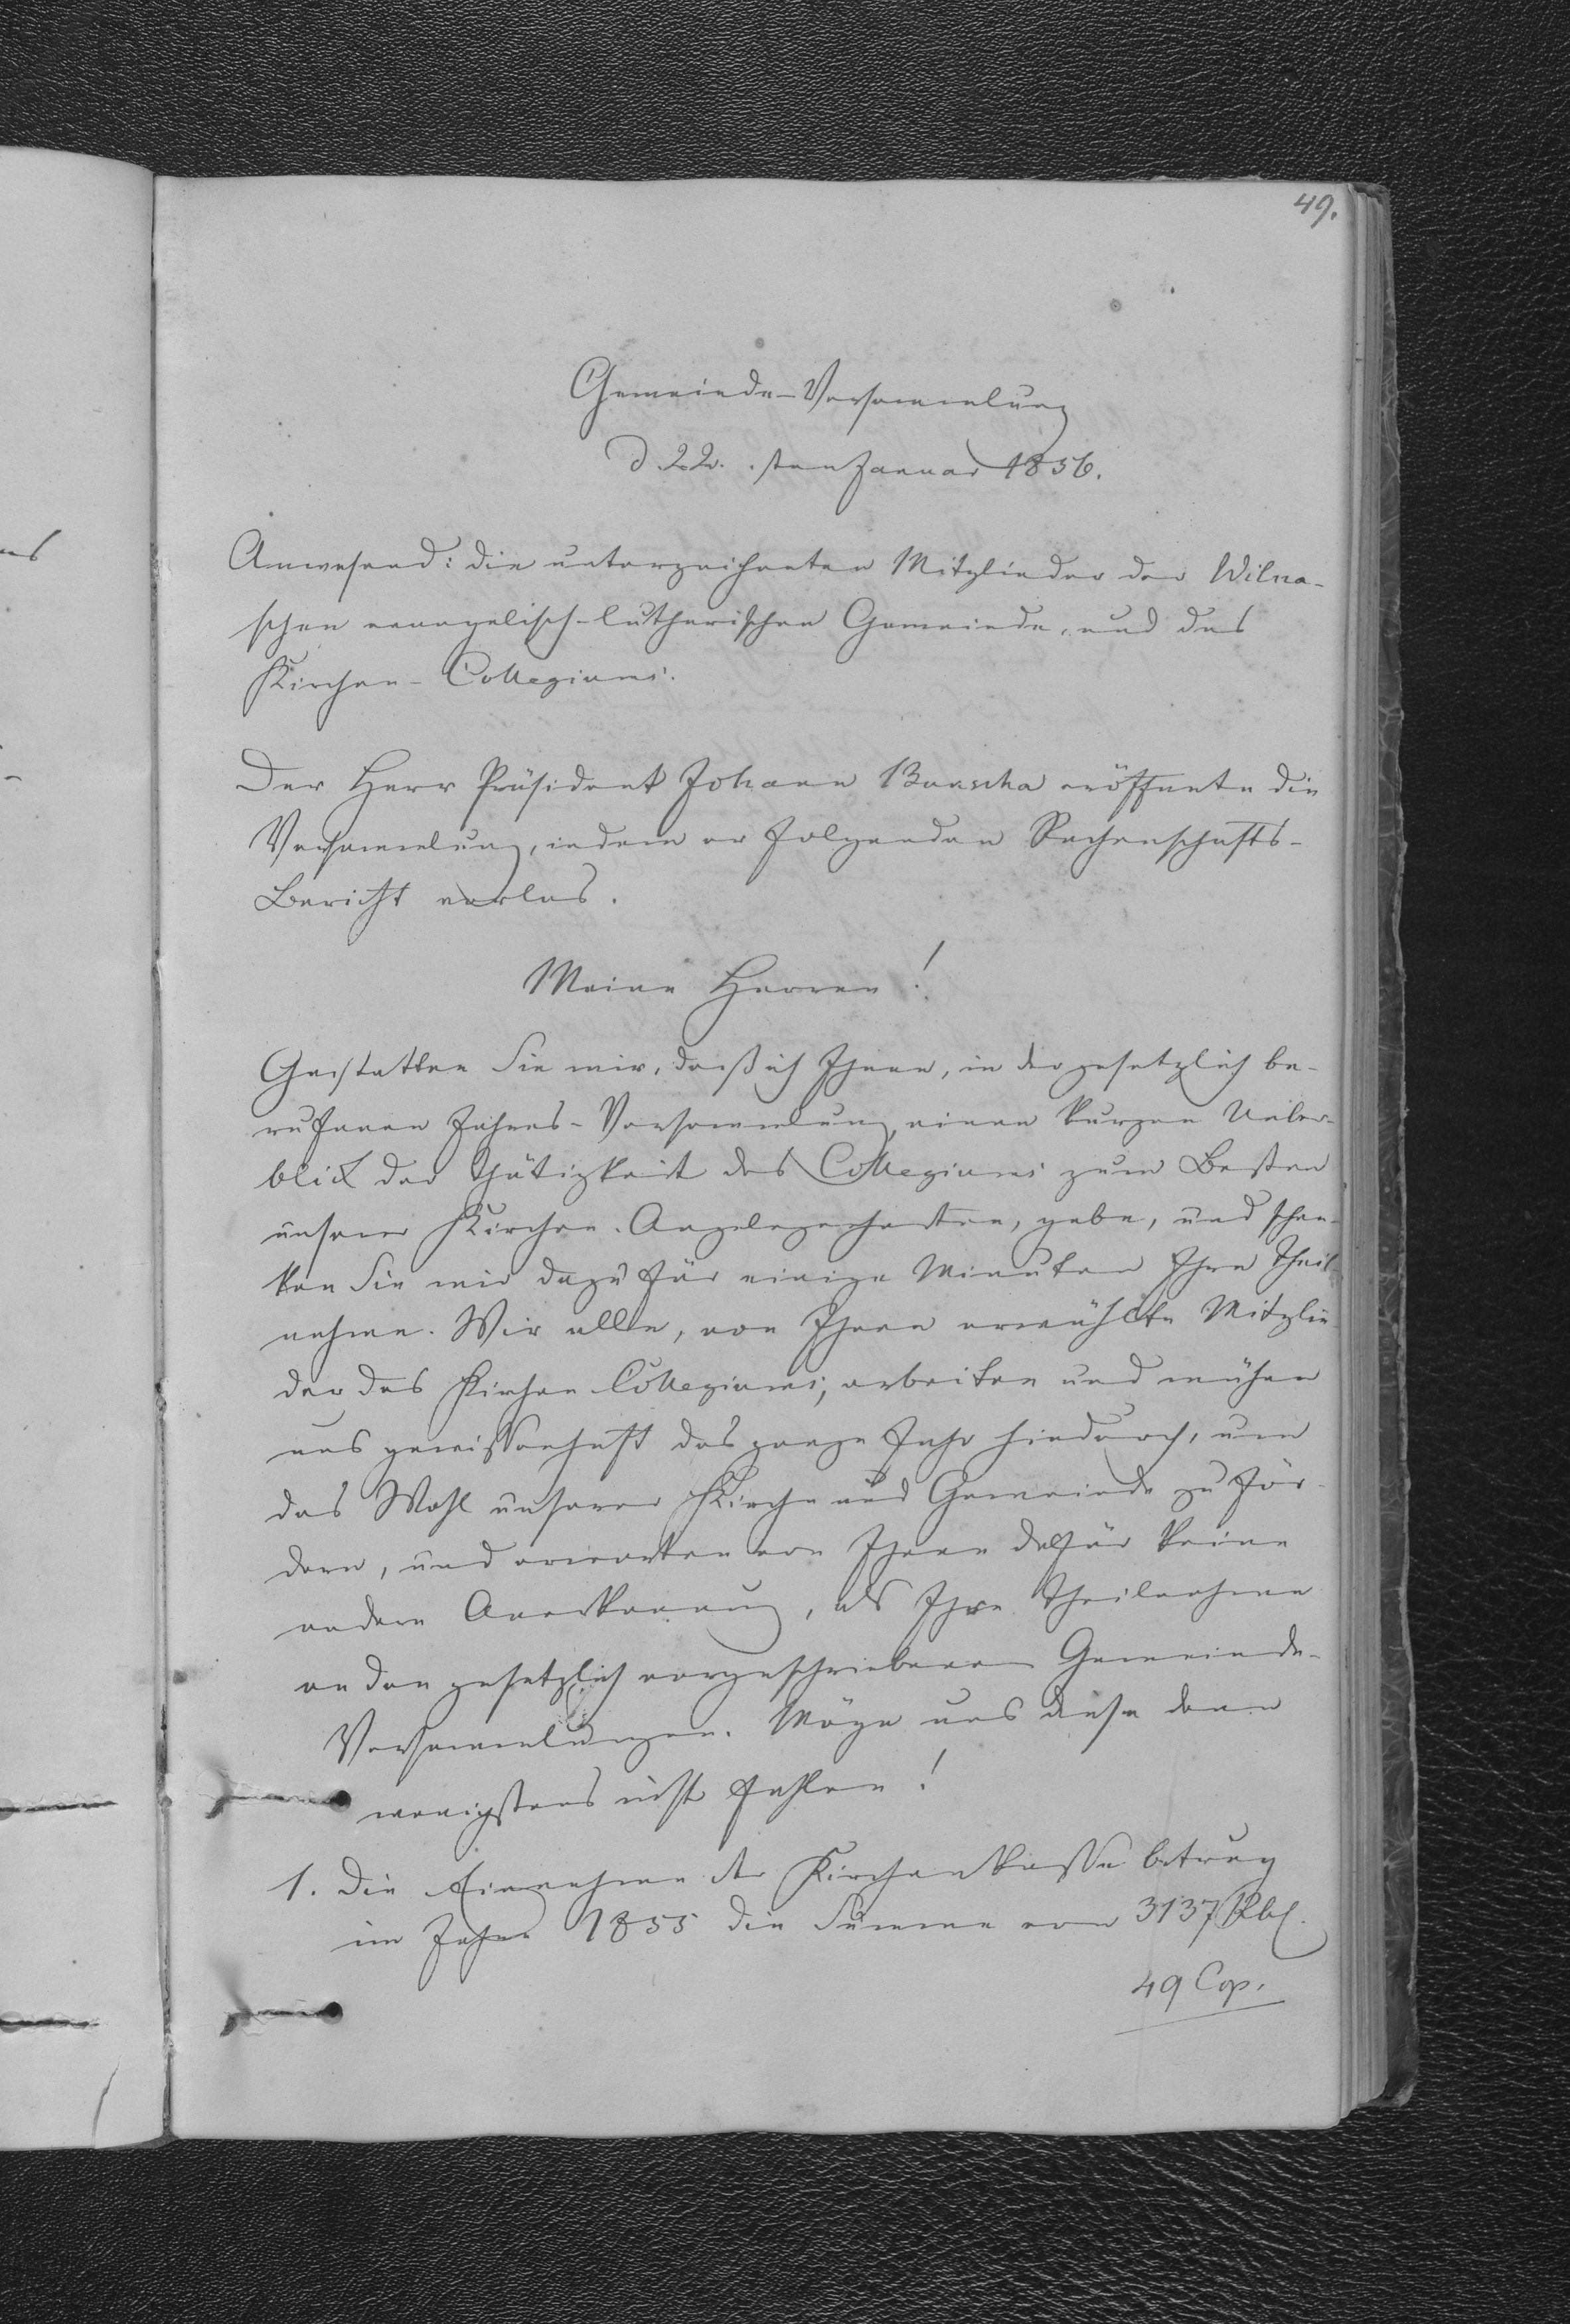 49.
Gemeinde-Versammlung
d. 22. sten Januar 1856.
Anwesend: die unterzeichneten Mitglieder der Wilna-
schen evangelisch-lutherischen Gemeinde, und des
Kirchen-Collegiums.
Der Herr Präsident Johann eröffnete die
Versammlung, indem er folgenden Rechenschafts-
Bericht vorlas.
Meine Herren!
Gestatten Sie mir, daß ich Ihnen, in der gesetzlich be-
rufenen Jahres-Versammlung, einen kurzen Ueber-
blick der Thätigkeit des Collegiums zum Besten
unserer Kirchen-Angelegenheiten, gebe, und schen-
ken Sie mir dazu für einige Minuten Ihre Theil-
nahme. Wir alle, von Ihnen erwählte Mitglie-
der des Kirchen Collegiums, arbeiten und mühen
uns gewissenhaft das ganze Jahr hindurch, um
das Wohl unserer Kirche und Gemeinde zu för-
dern, und erwarten von Ihnen dafür keine
andere Anerkennung, als Ihre Theilnahme
an den gesetzlich vorgeschriebenen Gemeinde-
Versammlungen. Möge uns diese denn
wenigstens nicht fehlen!
1. Die Einnahme der Kirchenkasse betrug
im Jahre 1855 die Summe von 3137 Rbl.
49 Cop.